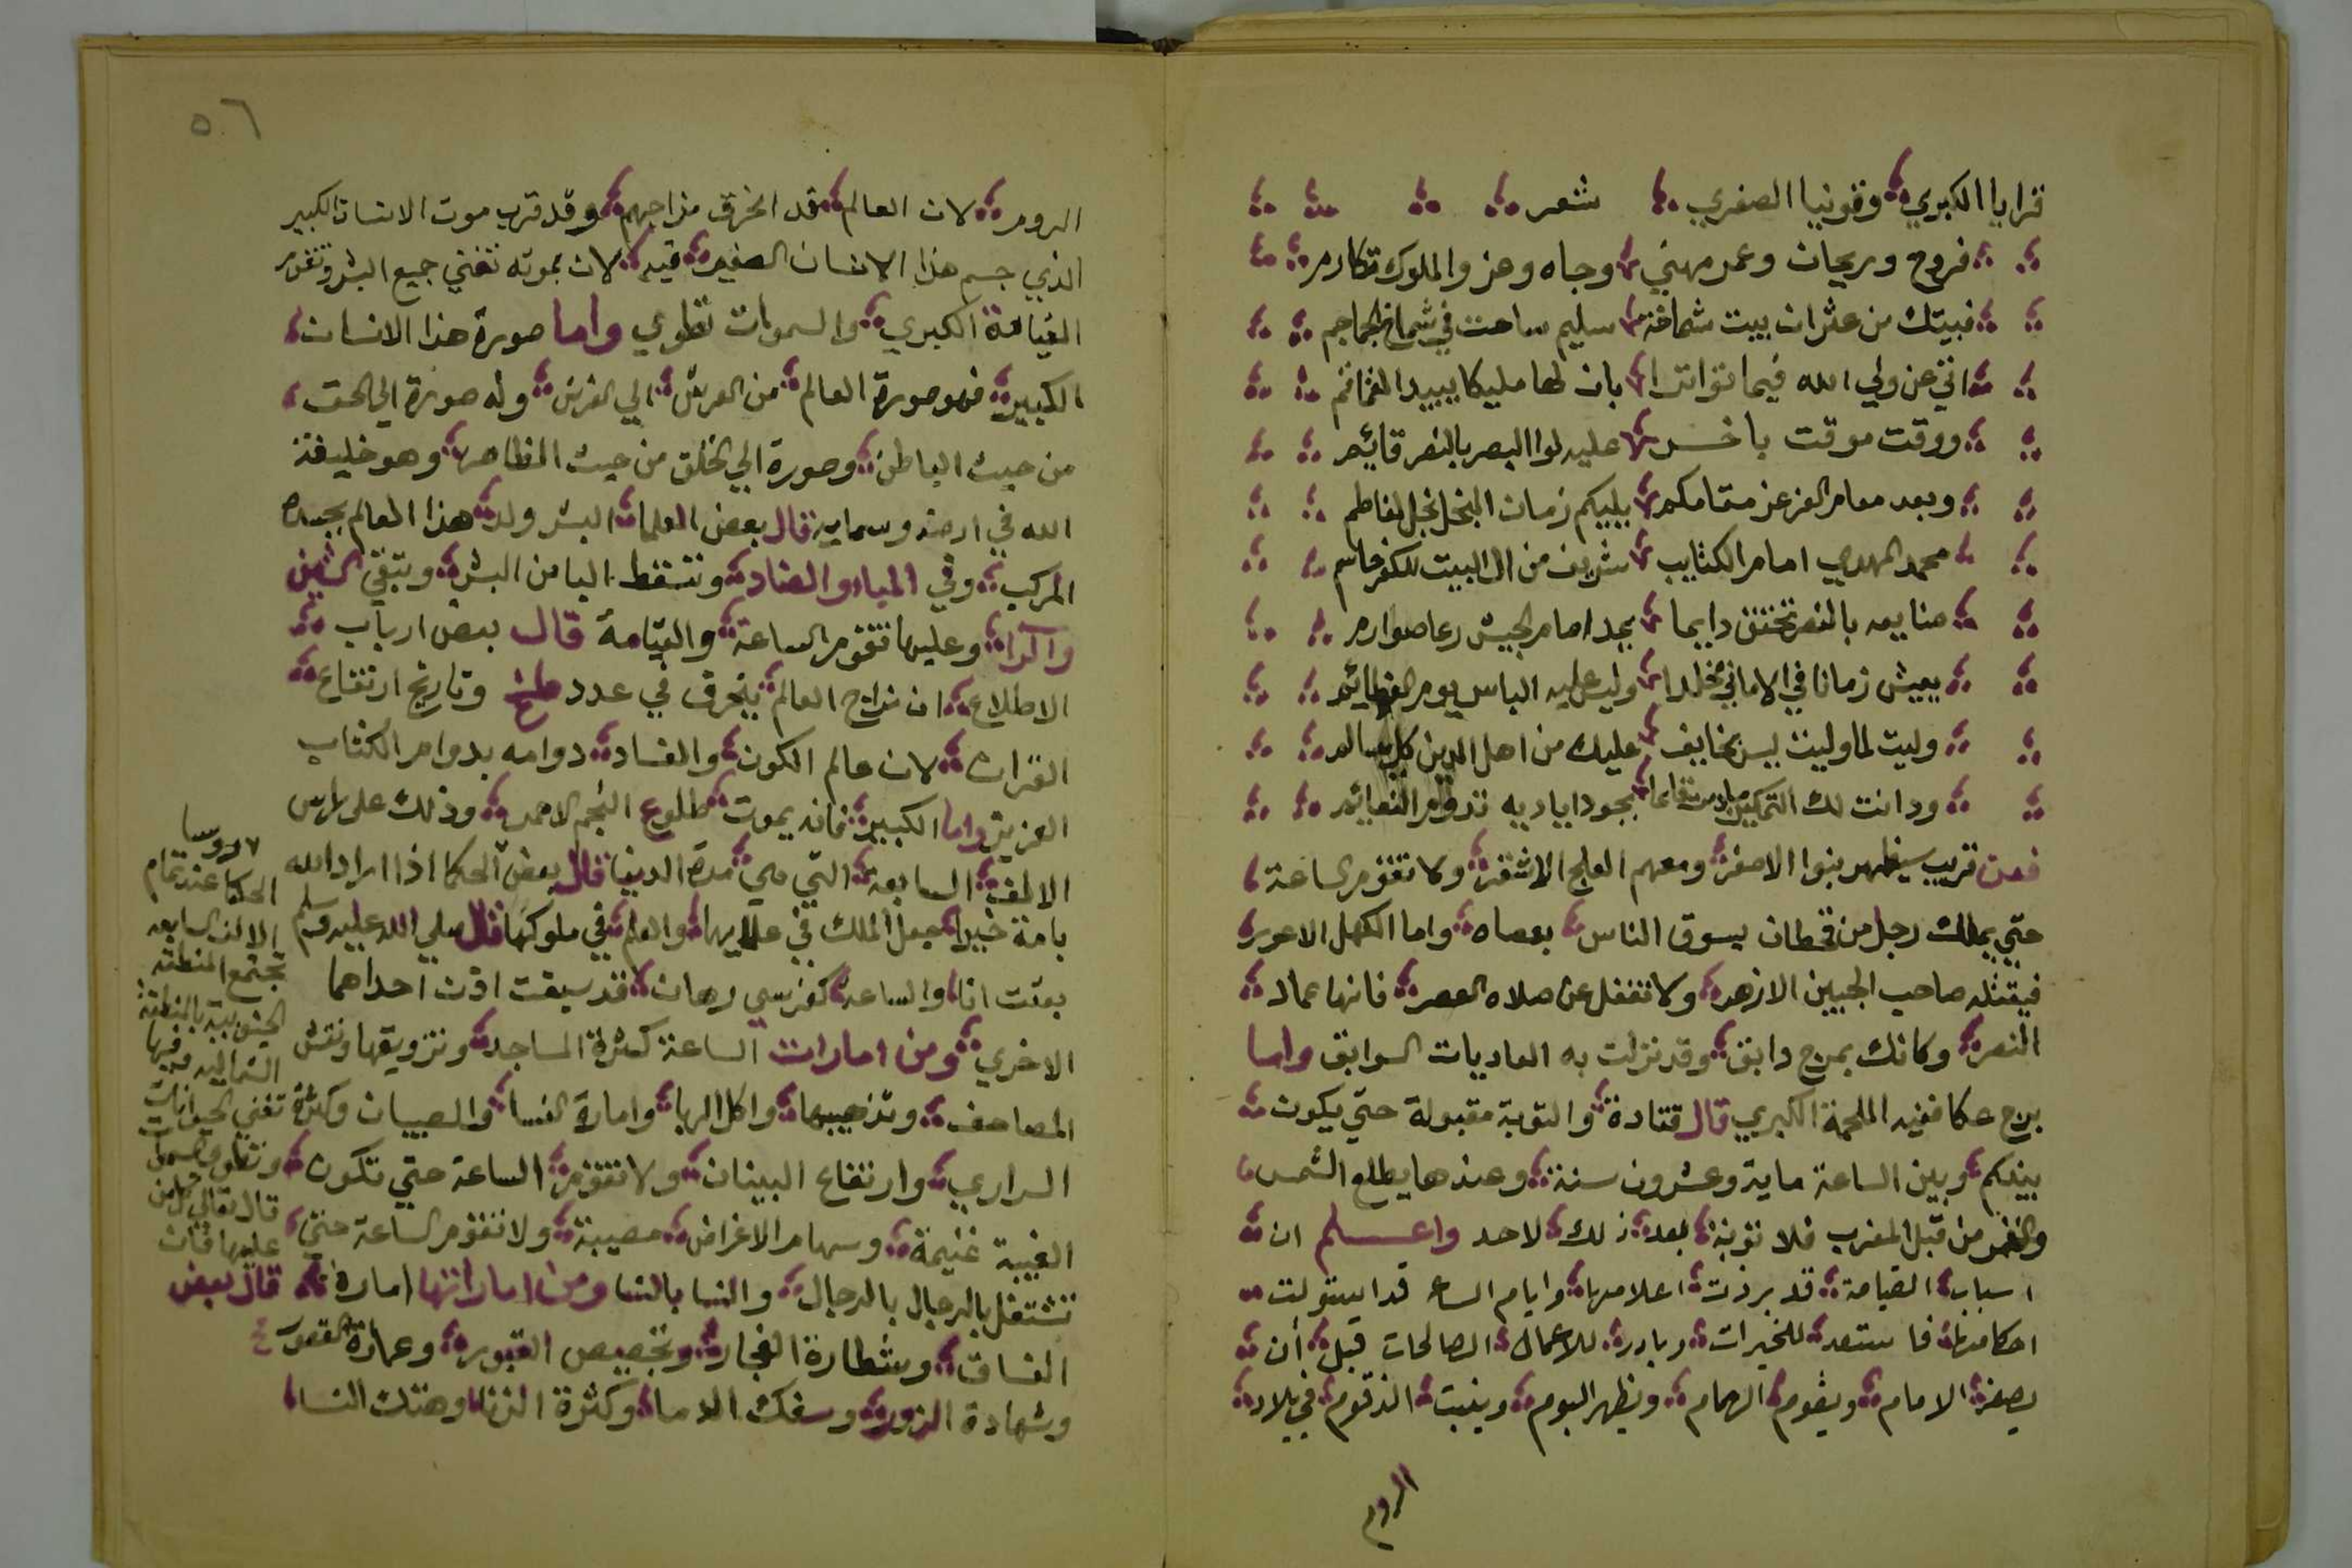 قرايا الكبري وقونيا الصغري شعر
فروح وريحان وعمر مهني وجاه وعز والملوك تكادم
فبيتك من عثران بيت شماخة سليم ساحت في شماخ الجماجم
اتي عن ولي الله فيما تواترا بان لها مليكا يبيد
ووقت موقت باخـــر عليه لوا النصر بالنصر قايم
وبعد معامر العز عز مقامكم يليكم زمان النجل نجل لفاطم
محمد المهدي امام الكتايب شريف من ال البيت للكفر حاسم
صنايعه بالنصر تختتن دايما يجد امام الجيش رعا صوارم
يعيش زمانا في الاماني مخلدا وليس عليه الباس يوم
وليت لما وليت ليس بخايف عليك من اهل الدين كل سالم
ودانت لك التمكين بجود اياديه تدوم
فعن قريب سيظهر بنوا الاصفر ومعهم العلج الاشقر ولا تقوم الساعة
حتي يملك رجل من قحطان يسوق الناس بعصاه واما الكهل الاعور
فيقتله صاحب الجبين الازهر ولا تغفل عن صلاه العصر فانها عماد
النصر وكانك بمرج دابق وقد نزلت به العاديات السوابق واما
برج عكا ففيه الملحمة الكبري قال قتادة والتوبة مقبولة حتي يكون
بينكم وبين الساعة ماية وعشرون سنة وعندها يطلع الشمس
والقمر من قبل المغرب فلا توبة بعد ذلك لاحد واعـــلم ان
اسباب القيامة قد برزت اعلامها وايام الساعه قد استولت
احكامها فاستعد للخيرات وبادر للاعمال الصالحات قبل أن
يصفر الامام ويقوم الهمام ويظهر البوم وينبت الزقوم في بلاد
الروم
٥٦
الروم لان العالم قد انخرق مزاجهم وقد قرب موت الانسان الكبير
الذي جسم هذا الانسان الصغير فيه لان بموته تفني جميع البشر وتقوم
القيامة الكبري والسموات تطوي واما صورة هذا الانسان
الكبير فهو صورة العالم من العرش الي الفرش وله صورة الي الحق
من حيث الباطن وصورة الي الخلق من حيث الظاهر وهو خليفة
الله في ارضه وسمايه قال بعض العلما البشر ولد هذا العالم بجسده
المركب وفي الميا والضاد وتسقط البا من البشر وتبقي الشين
والرا وعليها تقوم الساعة والقيامة قال بعض ارباب
الاطلاع ان مزاج العالم ينحرف في عدد وتاريخ ارتفاع
القران لان عالم الكون والفساد دوامه بدوام الكتاب
العزيز واما الكبير فانه يموت طلوع النجم الاحمر وذلك علي راس
الالف السابعة التي هي مدة الدنيا قال بعض الحكما اذا اراد الله
بامة خيرا جعل الملك في علمايها والعلم في ملوكها قال صلي الله عليه وسلم
بعثت انا والساعة كفرسي رهان قد سبقت اذن احداهما
الاخري ومن امارات الساعة كثرة المساجد وتزويقها ونقش
المصاحف وتذهيبها واكل الربا وامارة النسا والصبيان وكثرة
السراري وارتفاع البنيان ولا تقوم الساعة حتي تكون
الغيبة غنيمة وسهام الاغراض مصيبة ولا تقوم الساعة حتي
تشتغل بالرجال بالرجال والنسا بالنسا ومن اماراتها امارة
الفساق وشطارة الفجار وتجصيص القبور وعمارة القصور
وشهادة الزور وسفك الدما وكثرة الزنا وهتك النسا
الحكما عند تمام
الالف السابعه
تجتمع المنطقه
الجنوبية بالمنطقة
الشماليه وفيها
تفني الحيوانات
وتطوي السموات
قال تعالي كل من
عليها فان
قال بعض